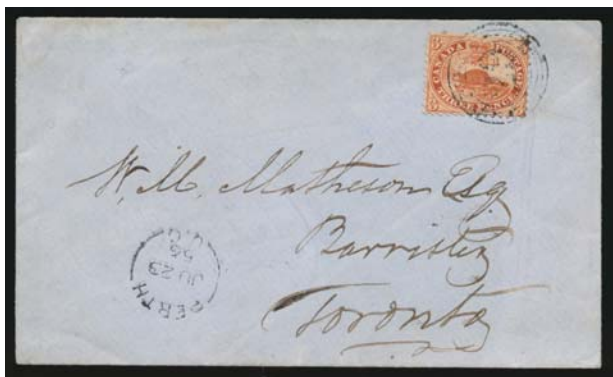 CANADA POSTAGE
3 3
W. M. Matheson Esq
Barrister
Toronto
PERTH
JU 23
56
U.C